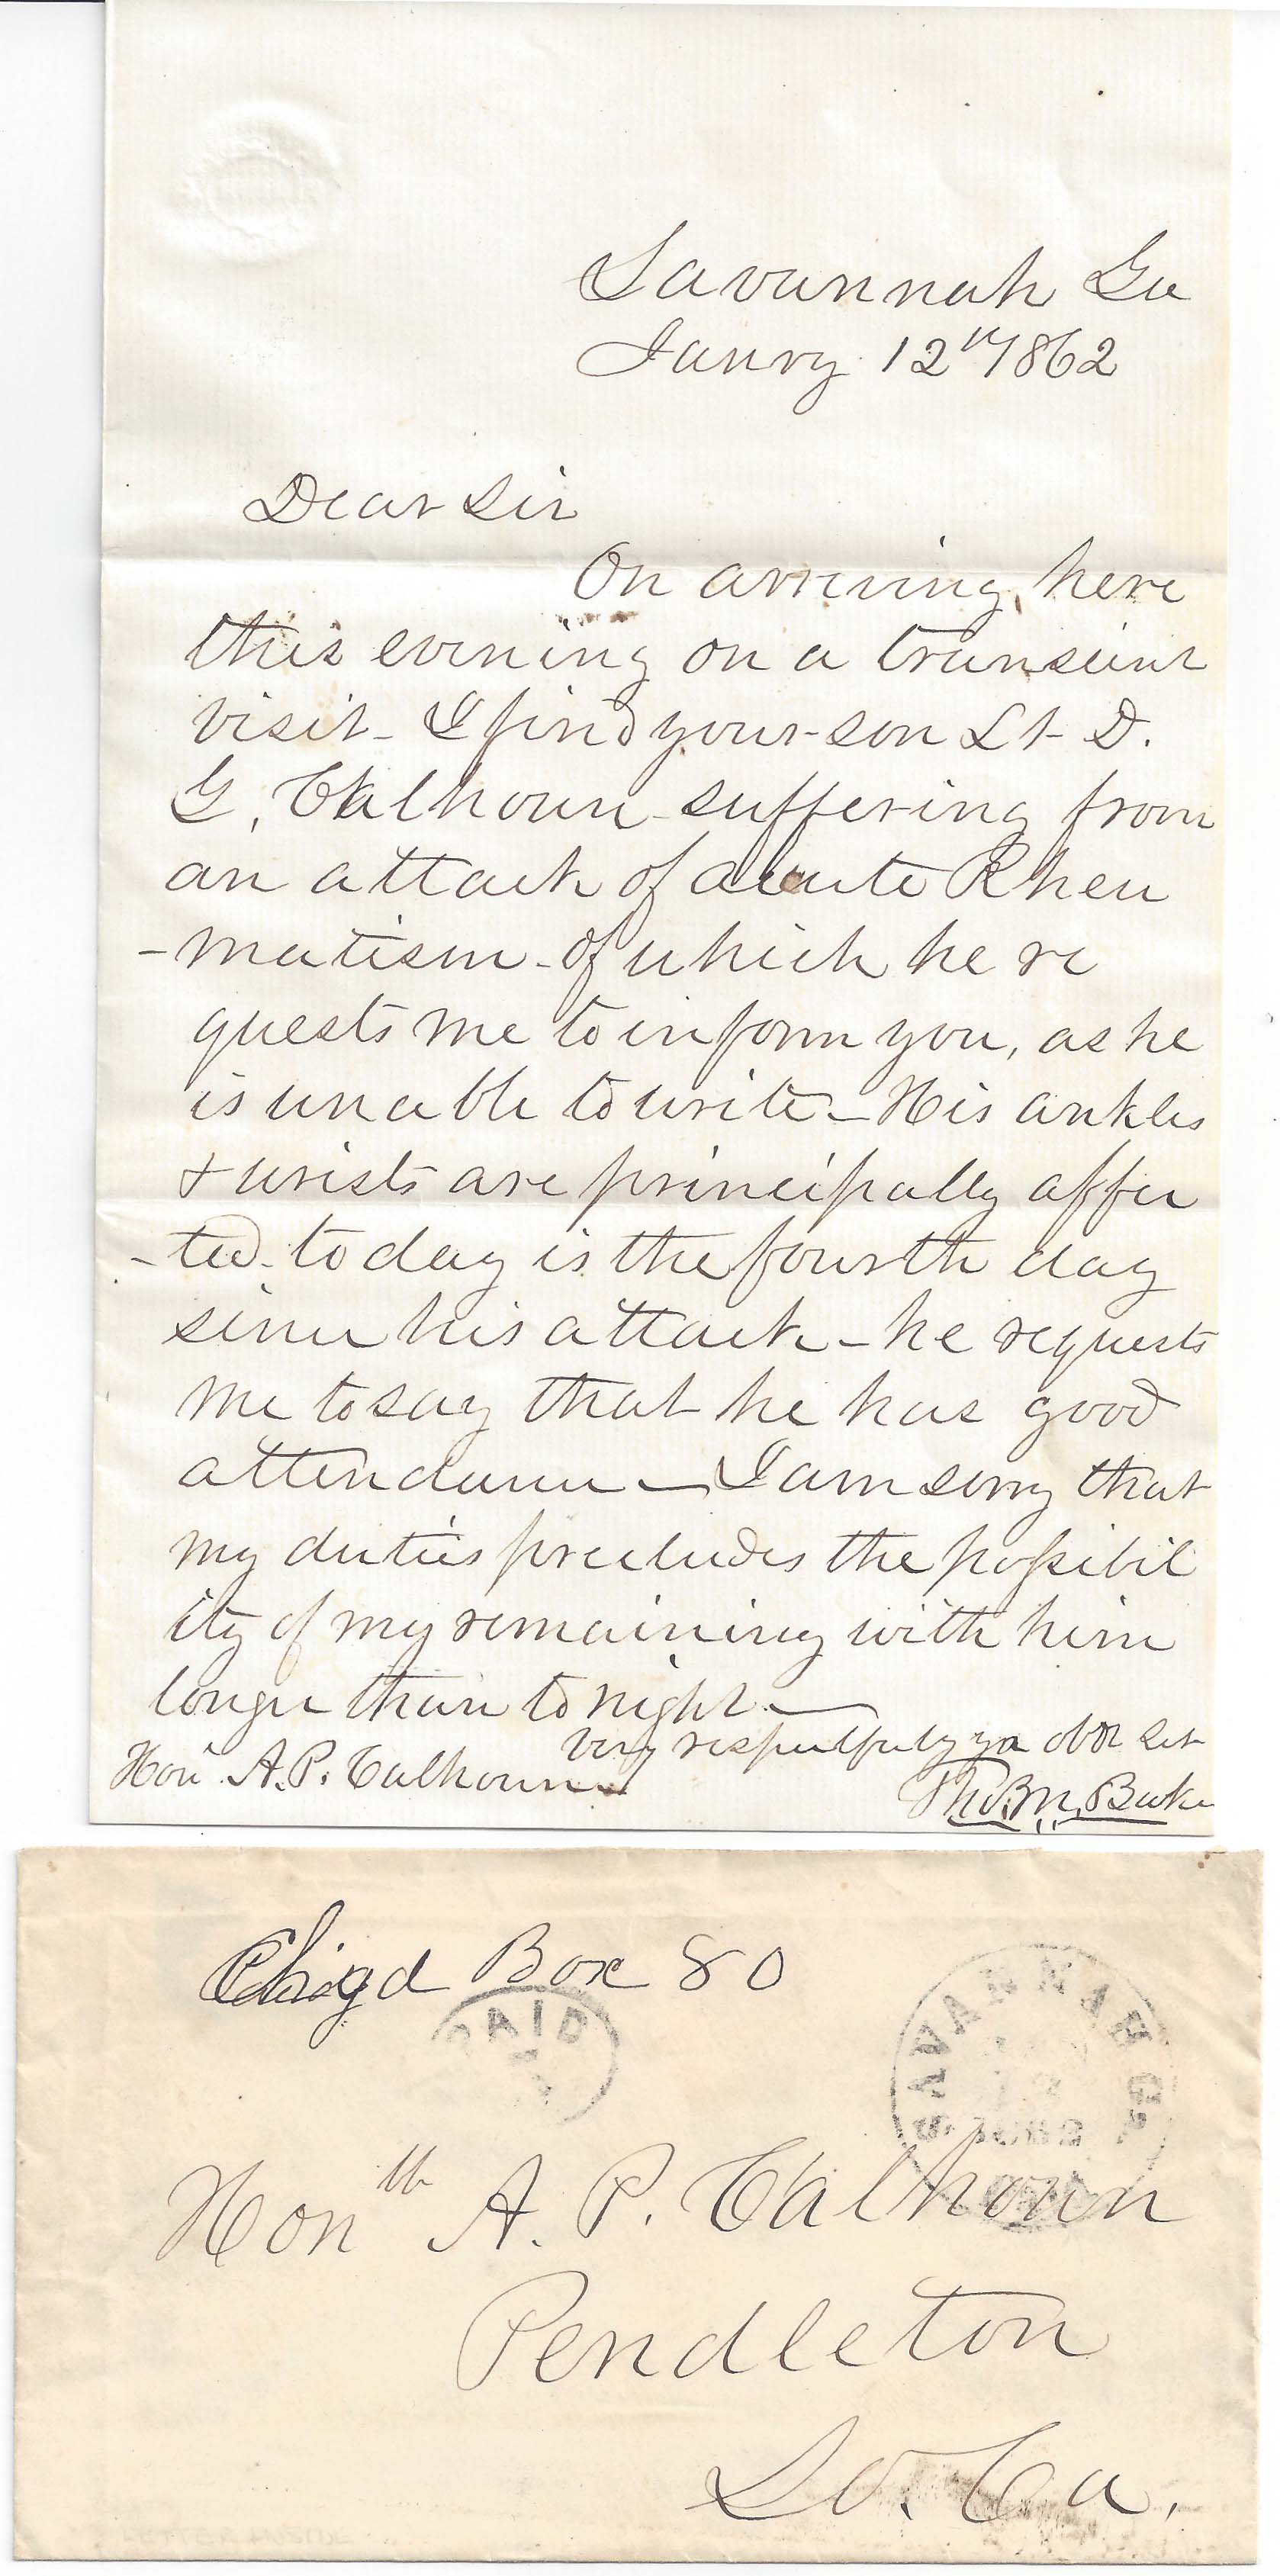 Savannah Ga
Janry 12th 1862
Dear Sir
On arriving here
this evening on a transient
visit - I find your son Lt D.
G. Calhoun suffering from
an attack of acute Rheu
-matism - of which he re
quests me to inform you, as he
is unable to write - His ankles
& wrists are principally affec
-ted. to day is the fourth day
since his attack - he requests
me to say that he has good
attendance - I am sorry that
my duties precludes the possibil
ity of my remaining with him
longer than to night -
Very respectfully yr obt svt
Hon A. P. Calhoun
Box 80
PAID
SAVANNAH GA
1862
Honble A. P. Calhoun
Pendleton
So. Ca.
LETTER INSIDE